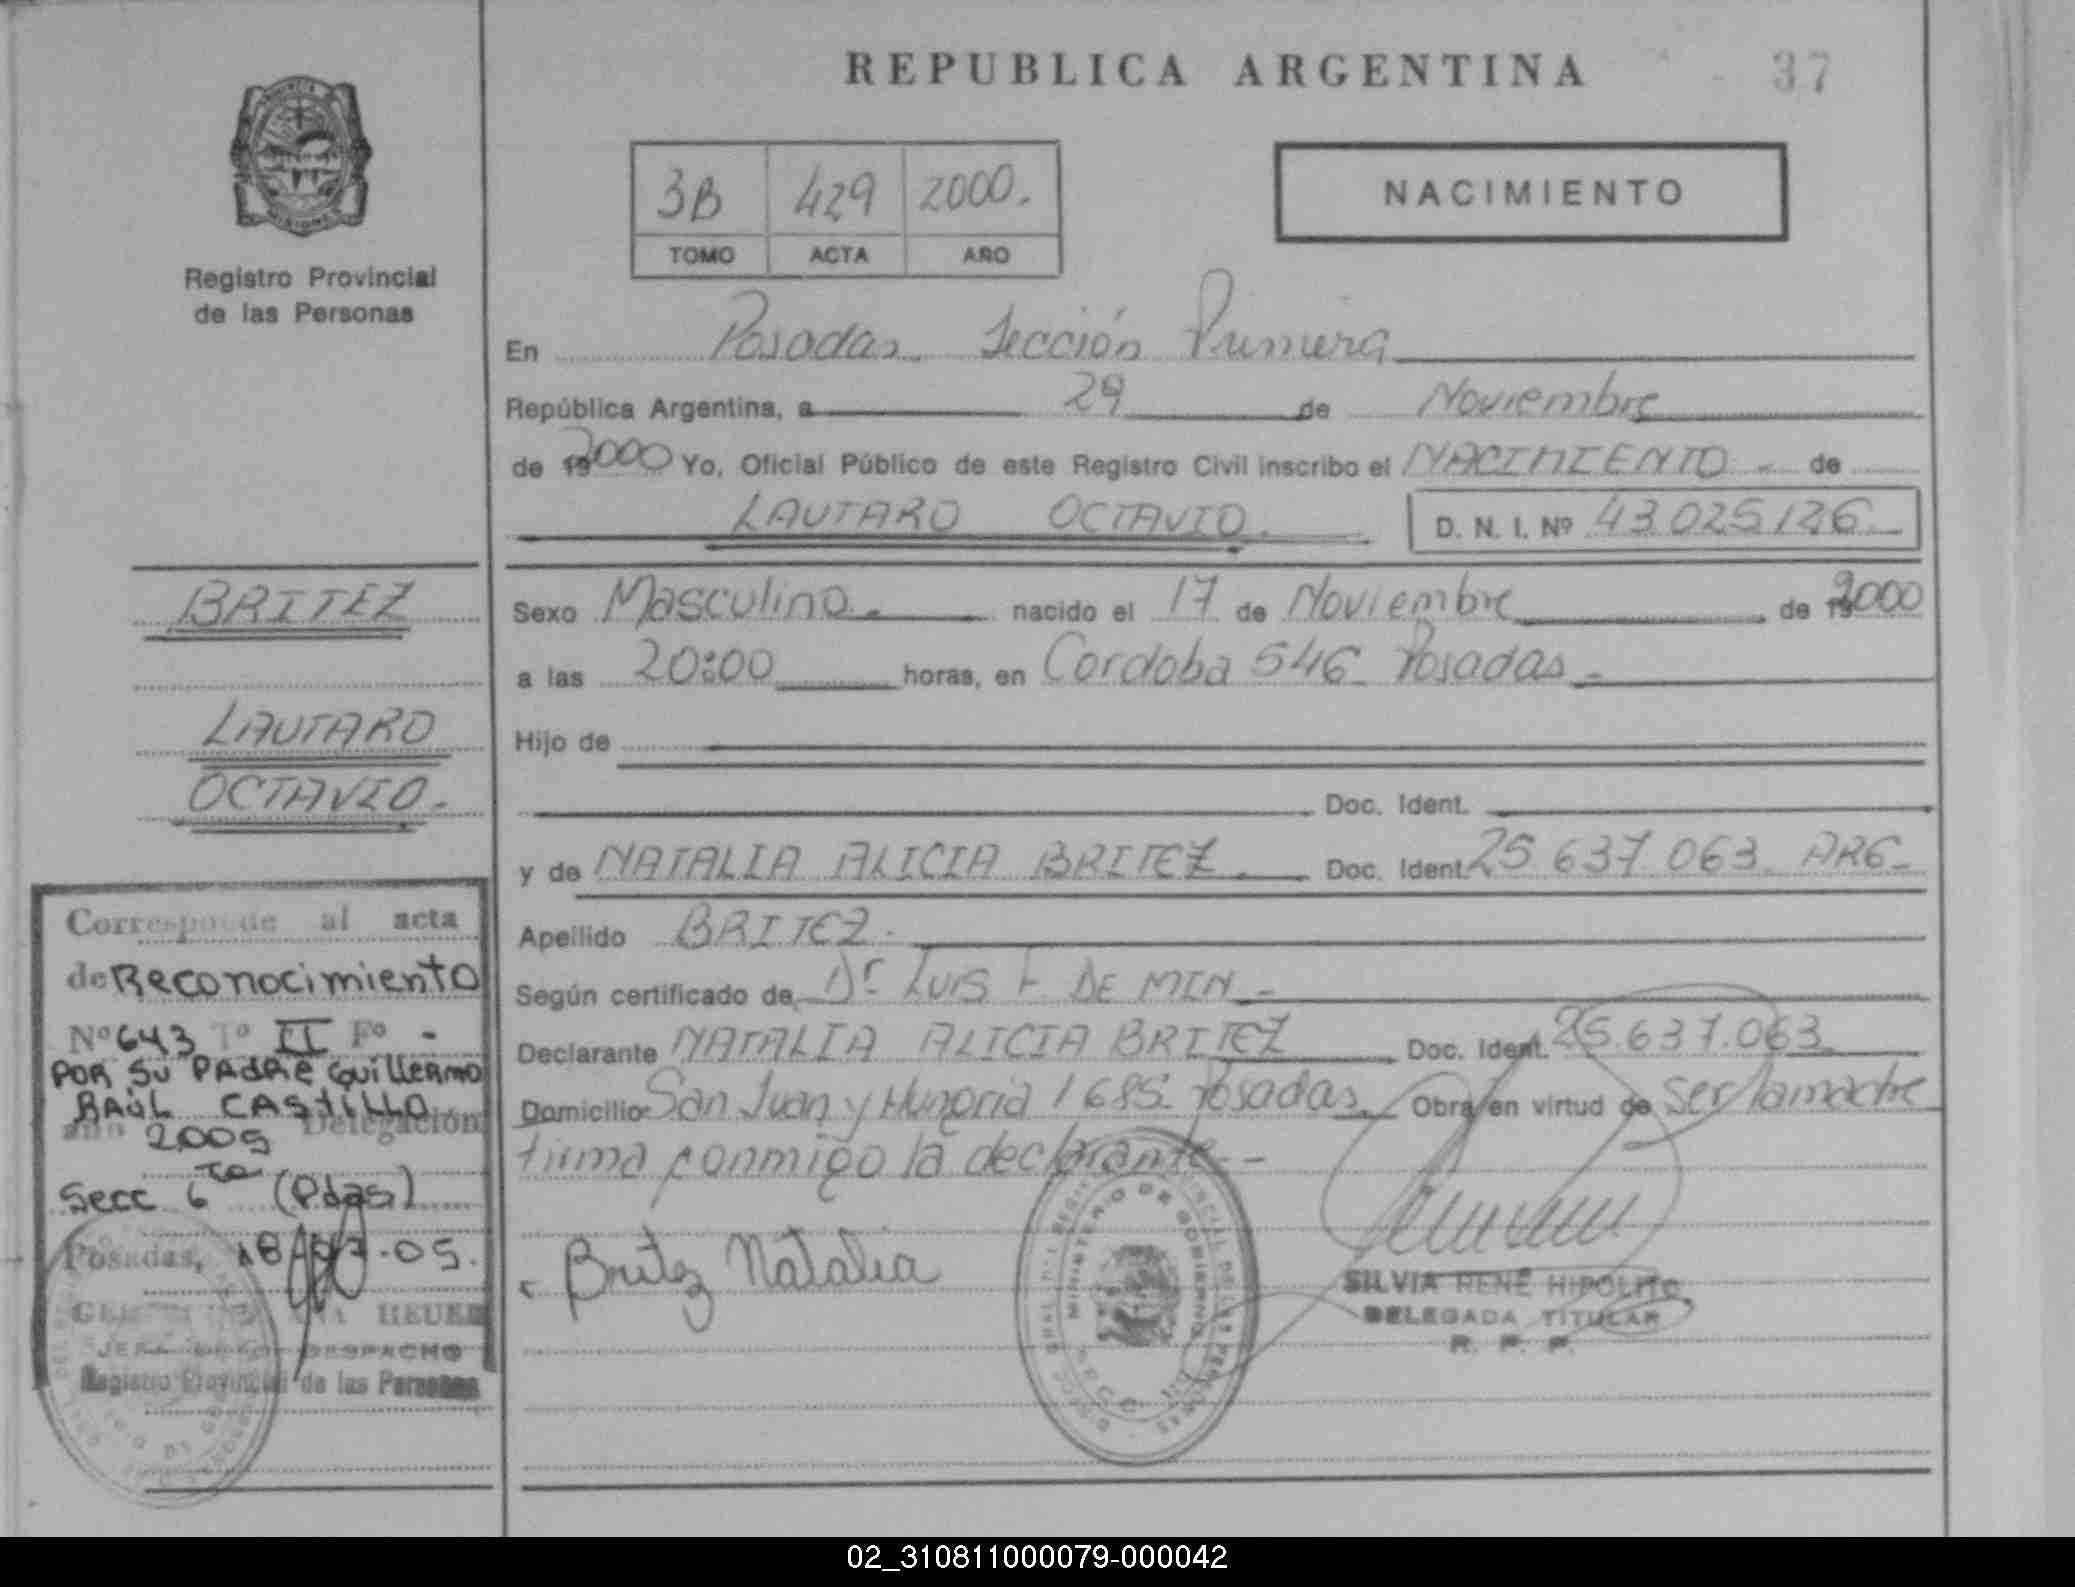 REPUBLICA ARGENTINA
37
3B 429 2000.
TOMO ACTA AÑO
NACIMIENTO
Registro Provincial
de las Personas
En Posadas. Sección Primera
República Argentina, a 29 de Noviembre
de 2000 Yo, Oficial Público de este Registro Civil inscribo el NACIMIENTO - de
LAUTARO OCTAVIO. D. N. I. Nº 43.025.126
BRITEZ
LAUTARO
OCTAVIO.-
Sexo Masculino.- nacido el 17 de Noviembre de 2000
a las 20:00 horas, en Cordoba 546 Posadas -
Hijo de
Doc. Ident.
y de NATALIA ALICIA BRITEZ. Doc. Ident. 25.637.063 ARG-
Apellido BRITEZ.
Según certificado de Dr LUIS F DE MIN -
Declarante NATALIA ALICIA BRITEZ Doc. Ident. 25.637.063
Domicilio San Juan y Hungria 1685 Posadas. Obra en virtud de ser la madre
firma conmigo la declarante.--
Britez Natalia
MINISTERIO DE GOBIERNO
SILVIA RENÉ HIPOLITO
DELEGADA TITULAR
R. P. P.
Corresponde al acta
de Reconocimiento
Nº 643 Tº II Fº -
POR SU PADRE GUILLERMO
RAÚL CASTILLO
año 2005 Delegación
Secc 6ta (Pdas)
Posadas, 18-07-05.
JEFA DE DESPACHO
Registro Provincial de las Personas
02_310811000079-000042